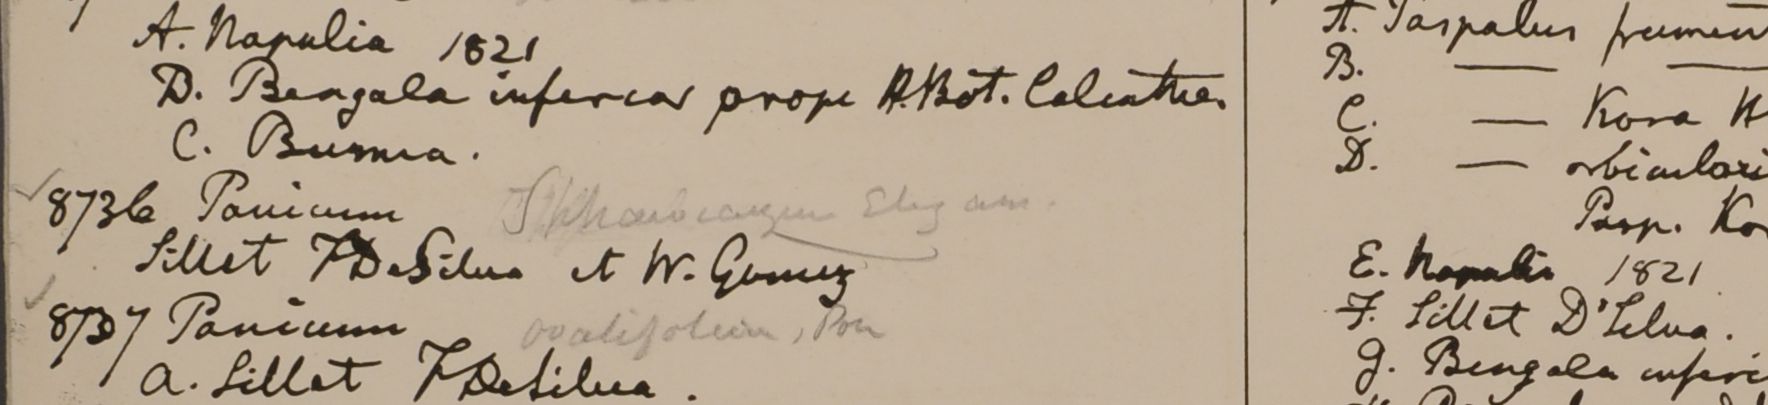 A. Napulia 1821
B. Bengala inferior prope H. Bot. Calcuttae.
C. Burma.
8736 Panicum Elegans.
Sillet F DeSilva et W. Gomez
8737 Panicum ovalifolium, Poir
a. Sillet F DeSilva.
A. Paspalus frument
B. — —
C. — Kora H
D. — orbiculari
Pasp. Ko
E. Napalia 1821
F. Sillet D'Silva.
G. Bengala inferi